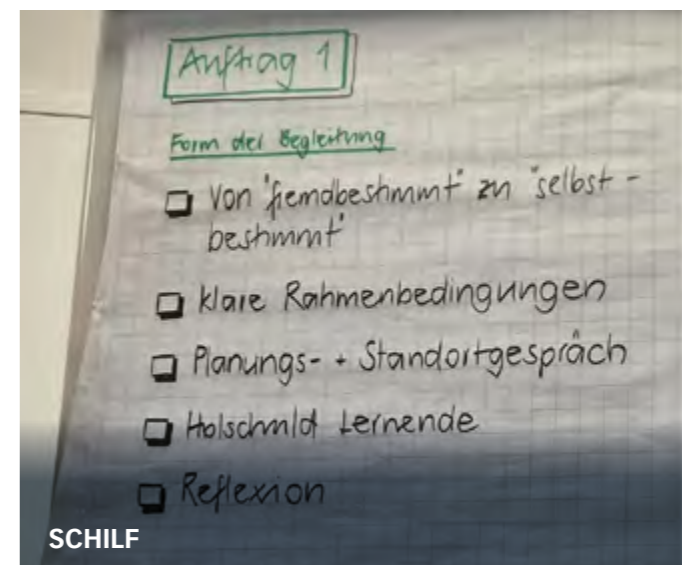 Auftrag 1
Form der Begleitung
Von "fremdbestimmt" zu "selbst-
bestimmt"
klare Rahmenbedingungen
Planungs- + Standortgespräch
Holschuld Lernende
Reflexion
SCHILF